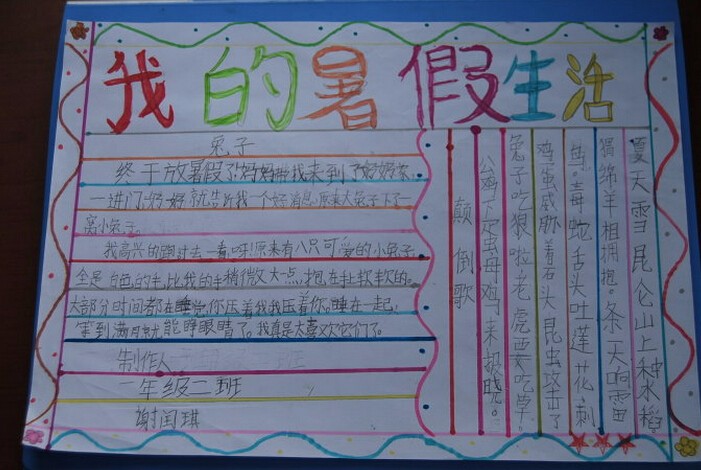 我的暑假生活
兔子
终于放暑假了妈妈带我来到了奶奶家
一进门奶奶就告诉我一个好消息原来大兔子下了一
窝小兔子
我高兴的跑过去一看呀原来有八只可爱的小兔子
全是白色的毛比我的手稍微大点,抱在手软软的。
大部分时间都在睡觉你压着我我压着你。睡在一起,
等到满月就能睁眼睛了。我真是太喜欢它们了。
制作人
二年级二班
谢闰琪
颠倒歌
夏天雪昆仑山上种水稻
猖绵羊相拥抱。冬天响雷
毒蛇舌头吐莲花刺
鸡蛋威胁着石头昆虫攻击了
兔子吃狼啦老虎要吃草。
公鸡下蛋母鸡来报晓。